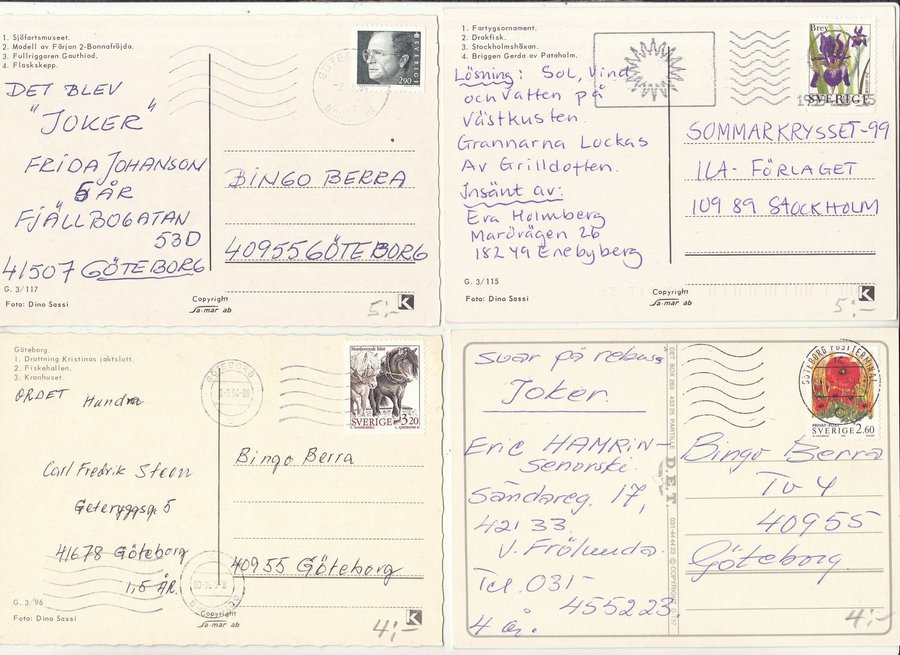 1. Sjöfartsmuseet.
2. Modell av Färjan 2-Bonnafröjda.
3. Fullriggaren Gauthiod.
4. Flaskskepp.
SVERIGE
290
DET BLEV
"JOKER"
FRIDA JOHANSON
5 ÅR
FJÄLLBOGATAN
53D
41507 GÖTEBORG
BINGO BERRA
40955 GÖTEBORG
G. 3/117
Foto: Dino Sassi
Copyright
Sa-mar ab
5:-
K
1. Fartygsornament.
2. Drakfisk.
3. Stockholmshäxan.
4. Briggen Gerda av Pataholm.
Brev
SVERIGE
Lösning: Sol, Vind
och Vatten på
Västkusten
Grannarna Lockas
Av Grilldoften.
Insänt av:
Eva Holmberg
Mardvägen 26
182 49 Enebyberg
SOMMARKRYSSET-99
ILA-FÖRLAGET
109 89 STOCKHOLM
G. 3/115
Foto: Dino Sassi
Copyright
Sa-mar ab
5:-
K
Göteborg.
1. Drottning Kristinas jaktslott.
2. Fiskehallen.
3. Kronhuset.
GÖTEBORG
Nordsvensk häst
SVERIGE 3.20
ORDET Hundra
Carl Fredrik Steen
Geteryggsg. 5
41678 Göteborg
1,5 ÅR.
Bingo Berra
40955 Göteborg
G. 3/96
Foto: Dino Sassi
Copyright
Sa-mar ab
4:-
K
svar på rebus
Joker
Eric HAMRIN-
Senorski
Sandareg. 17,
421 33
V. Frölunda.
Tel. 031-
455223
4 år.
DET BOX 263 433 25 PARTILLE D.E.T.
GÖTEBORG POSTTERMINAL
SVERIGE 2.60
Bingo Berra
Tv 4
40955
Göteborg
4:-